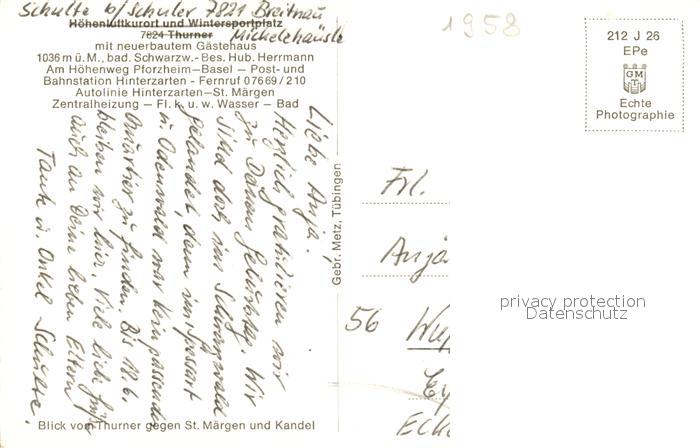 Schulte b/Schuler 7821 Breitnau
Michelehäusle
Höhenluftkurort und Wintersportplatz
7824 Thurner
mit neuerbautem Gästehaus
1036 m ü. M., bad. Schwarzw.- Bes. Hub. Herrmann
Am Höhenweg Pforzheim—Basel — Post- und
Bahnstation Hinterzarten - Fernruf 07669 / 210
Autolinie Hinterzarten—St. Märgen
Zentralheizung — Fl. k. u. w. Wasser — Bad
Liebe Anja.
Herzlich gratulieren wir
zu Deinem Geburtstag. Wir
sind doch im Schwarzwald
gelandet, denn im Spessart
u. Odenwald war kein passendes
Quartier zu finden. Bis 18.6.
bleiben wir hier. Viele liebe Grüße
auch an Deine lieben Eltern
Tante u. Onkel Schulte.
Blick vom Thurner gegen St. Märgen und Kandel
Gebr. Metz, Tübingen
1958
212 J 26
EPe
GM
T
Echte
Photographie
Frl.
Anja
56 Wup
Ecke
privacy protection
Datenschutz